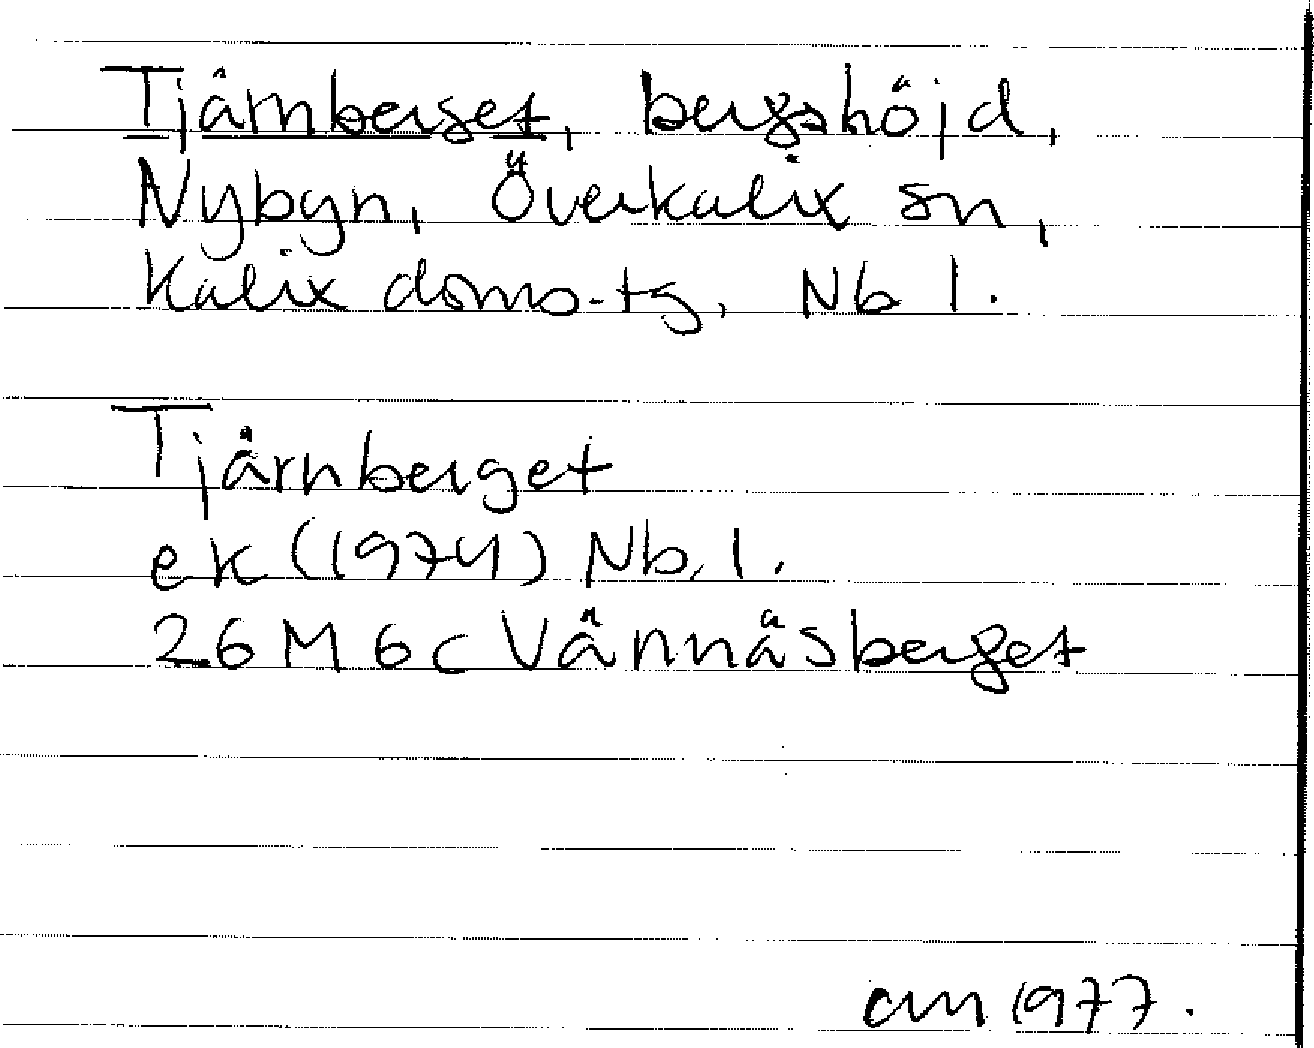 Tjärnberget, bergshöjd,
Nybyn, Överkalix sn,
Kalix doms-tg, Nb l.
Tjärnberget
ek (1974) Nb. l.
26 M 6 c Vännäsberget
1977.